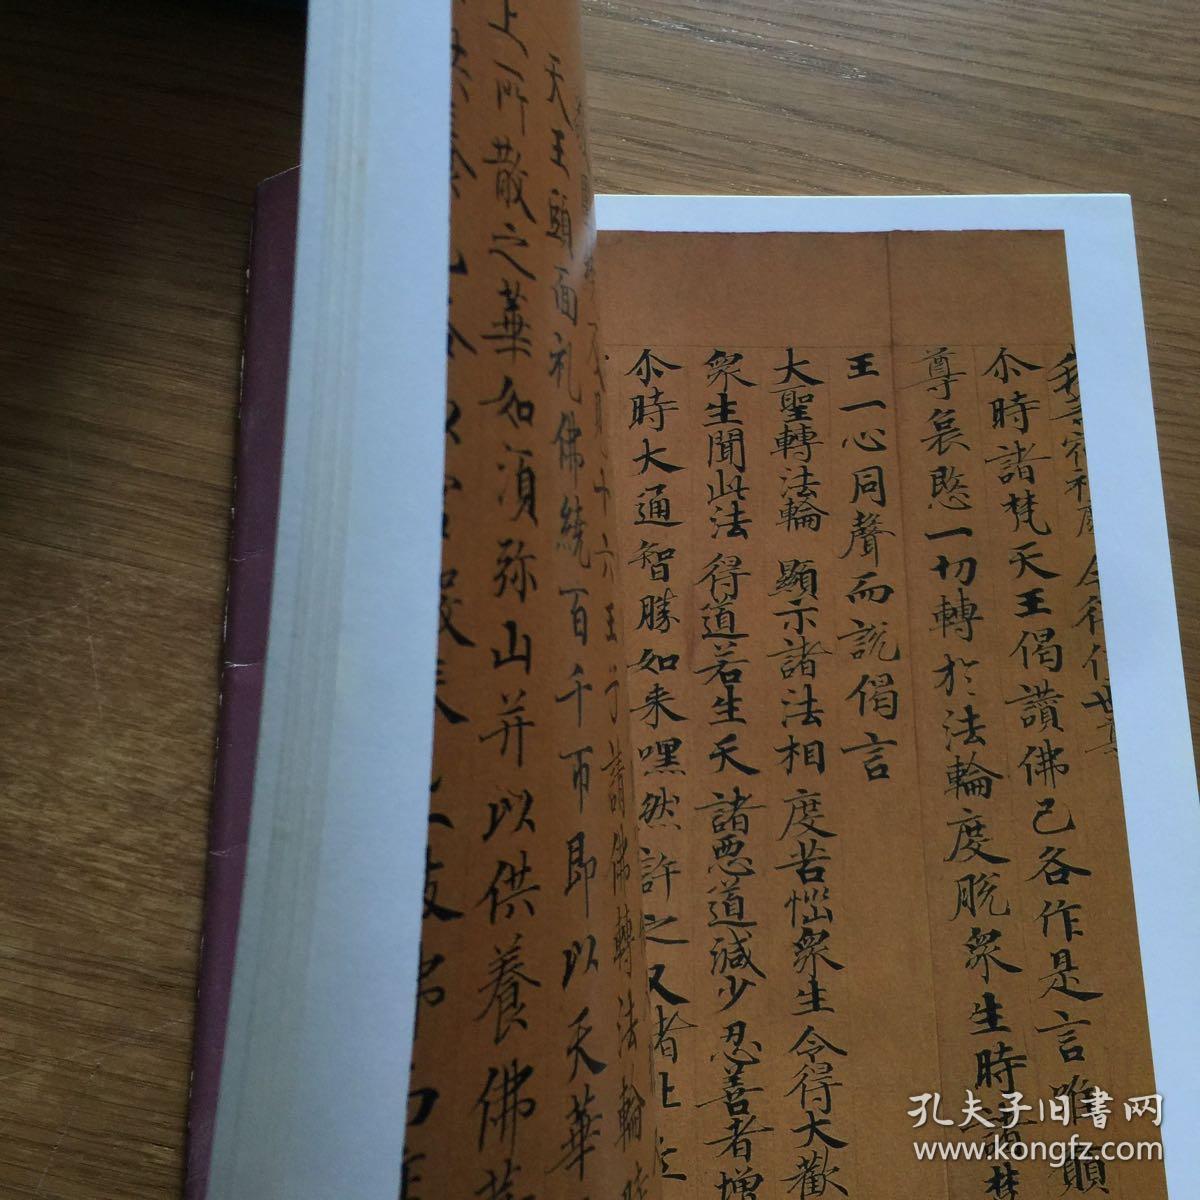 尒時諸梵天王偈讃佛已各作是言唯願
尊哀愍一切轉於法輪度脫衆生時諸梵
王一心同聲而說偈言
大聖轉法輪 顯示諸法相 度苦惱衆生 令得大歡
衆生聞此法 得道若生天 諸惡道減少 忍善者增
尒時大通智勝如来嘿然許之又
十六王子 請佛轉法輪時
天王頭面礼佛繞百千帀即以天華
上所散之華如湏弥山并以供養佛
孔夫子旧書网
www.kongfz.com